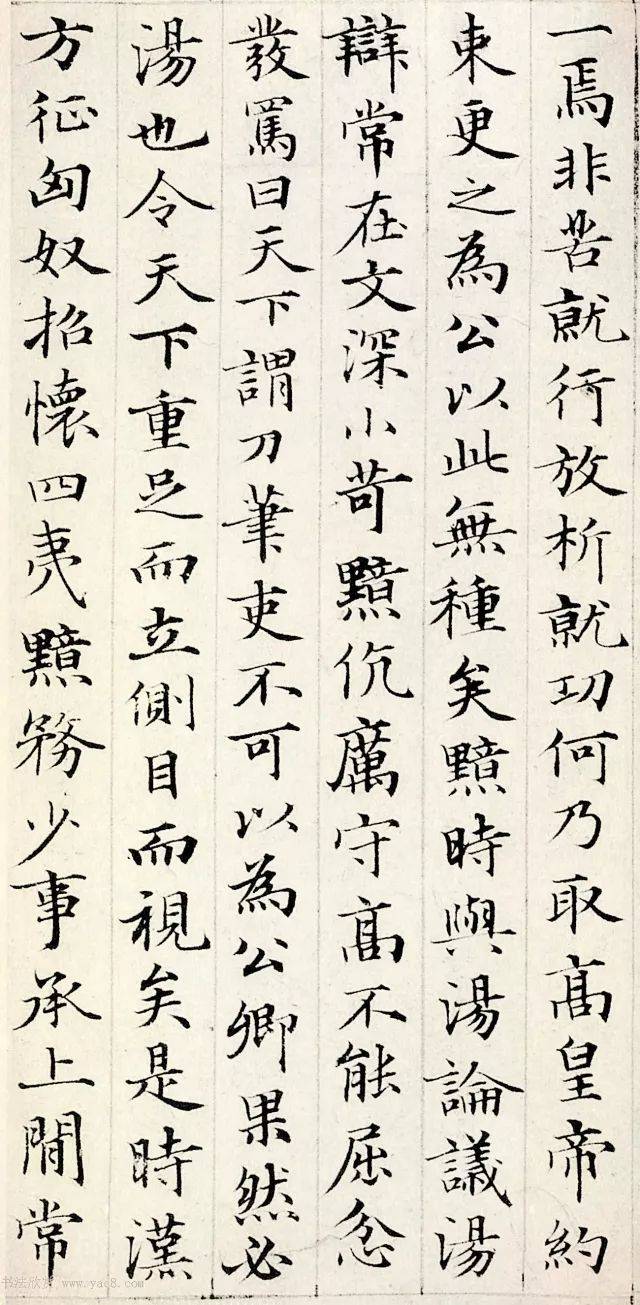 一焉非苦就行放析就功何乃取高皇帝約
束更之為公以此無種矣黯時與湯論議湯
辯常在文深小苛黯伉厲守高不能屈忿
發罵曰天下謂刀筆吏不可以為公卿果然必
湯也令天下重足而立側目而視矣是時漢
方征匈奴招懷四夷黯務少事承上間常
书法欣赏 www.yac8.com